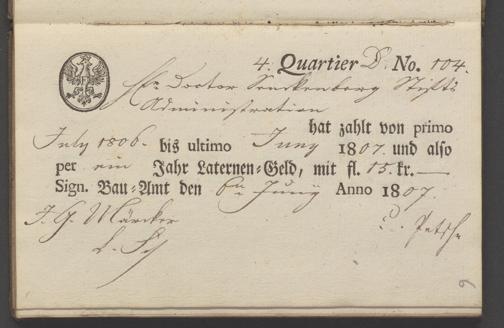 4. Quartier D. No. 104.
Hr. Doctor Senckenberg Stifts
Administration
hat zahlt von primo
July 1806. bis ultimo Juny 1807. und also
per ein Jahr Laternen-Geld, mit fl. 15. kr.
Sign. Bau-Amt den 6ten Juny Anno 1807.
J. G. Märcker